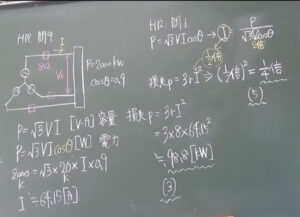 H.R. 問9
8Ω
Vr
P=2000kW
cosθ=0.9
P=√3VI [V・A] 容量
P=√3VIcosθ [W] 電力
2000=√3×20×I×0.9
K K
I=64.15[A]
H.R. 問1
P=√3VIcosθ → I = P/√3Vcosθ
2倍
1/2倍
損失P=3rI² ⇒ (1/2倍)²=1/4倍
(5)
損失P=3rI²
=3×8×64.15²
≒98.8[kW]
(3)